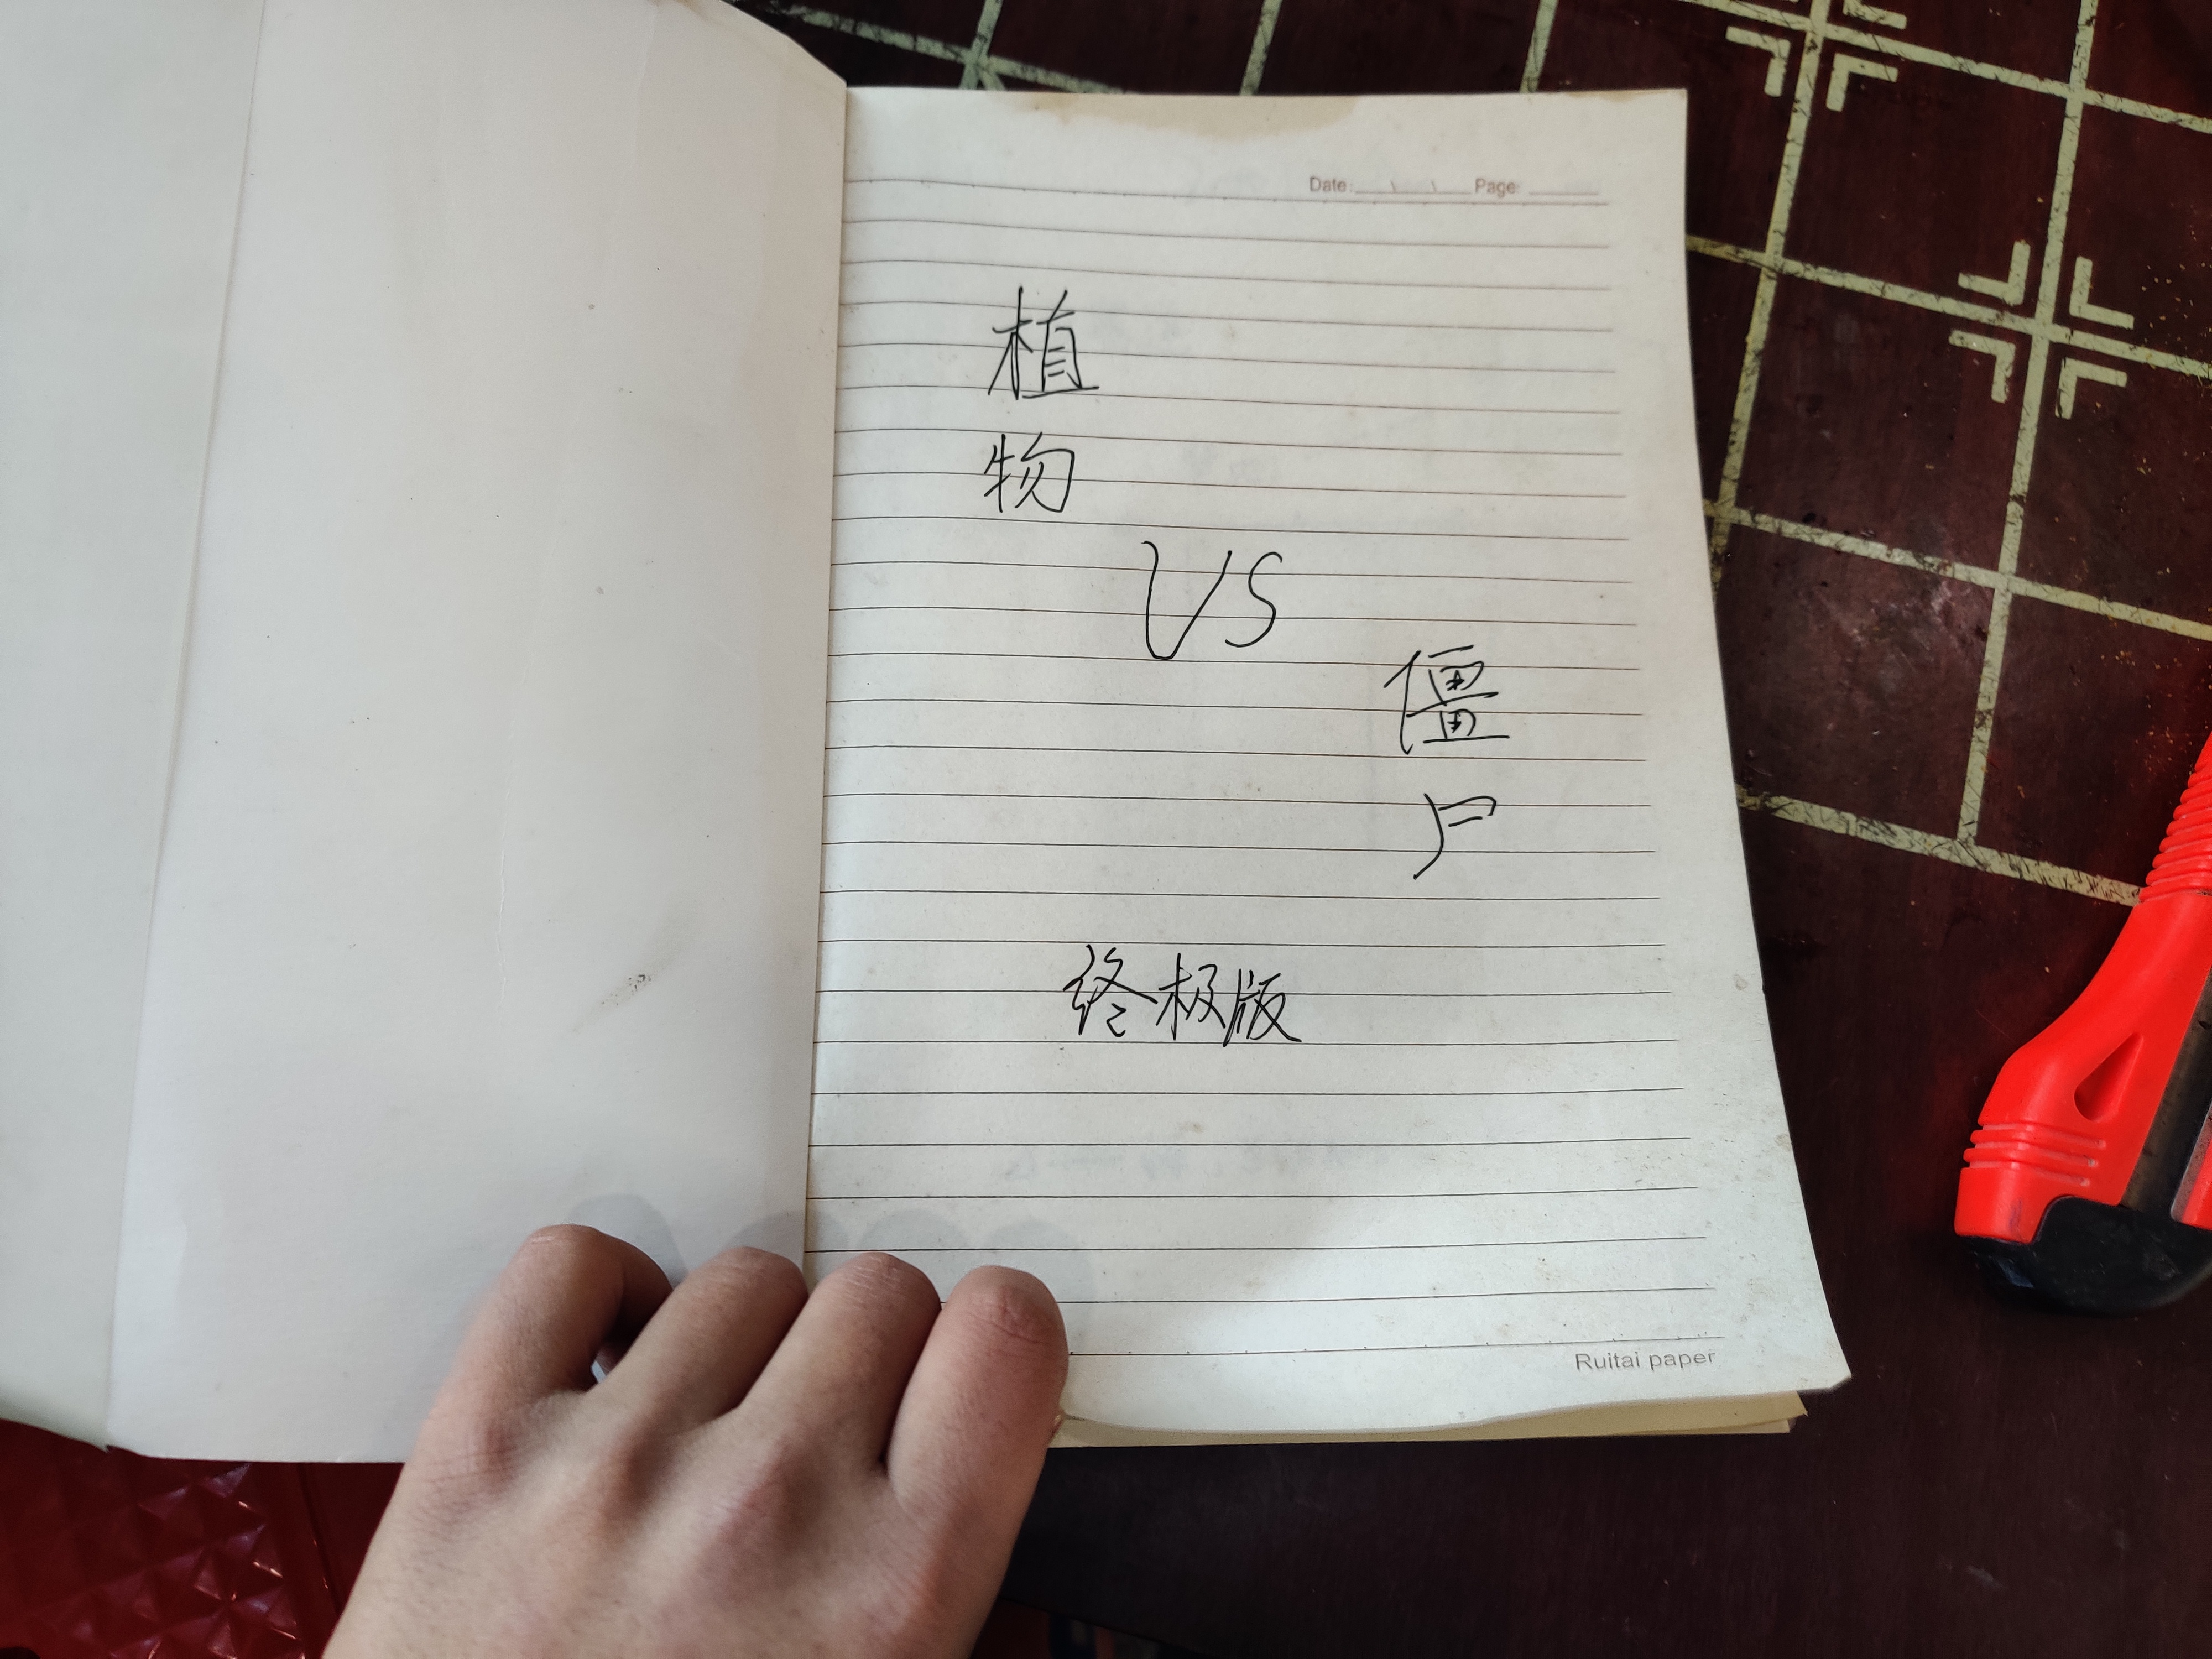 Date: Page:
植
物
VS
僵
尸
终极版
Ruitai paper